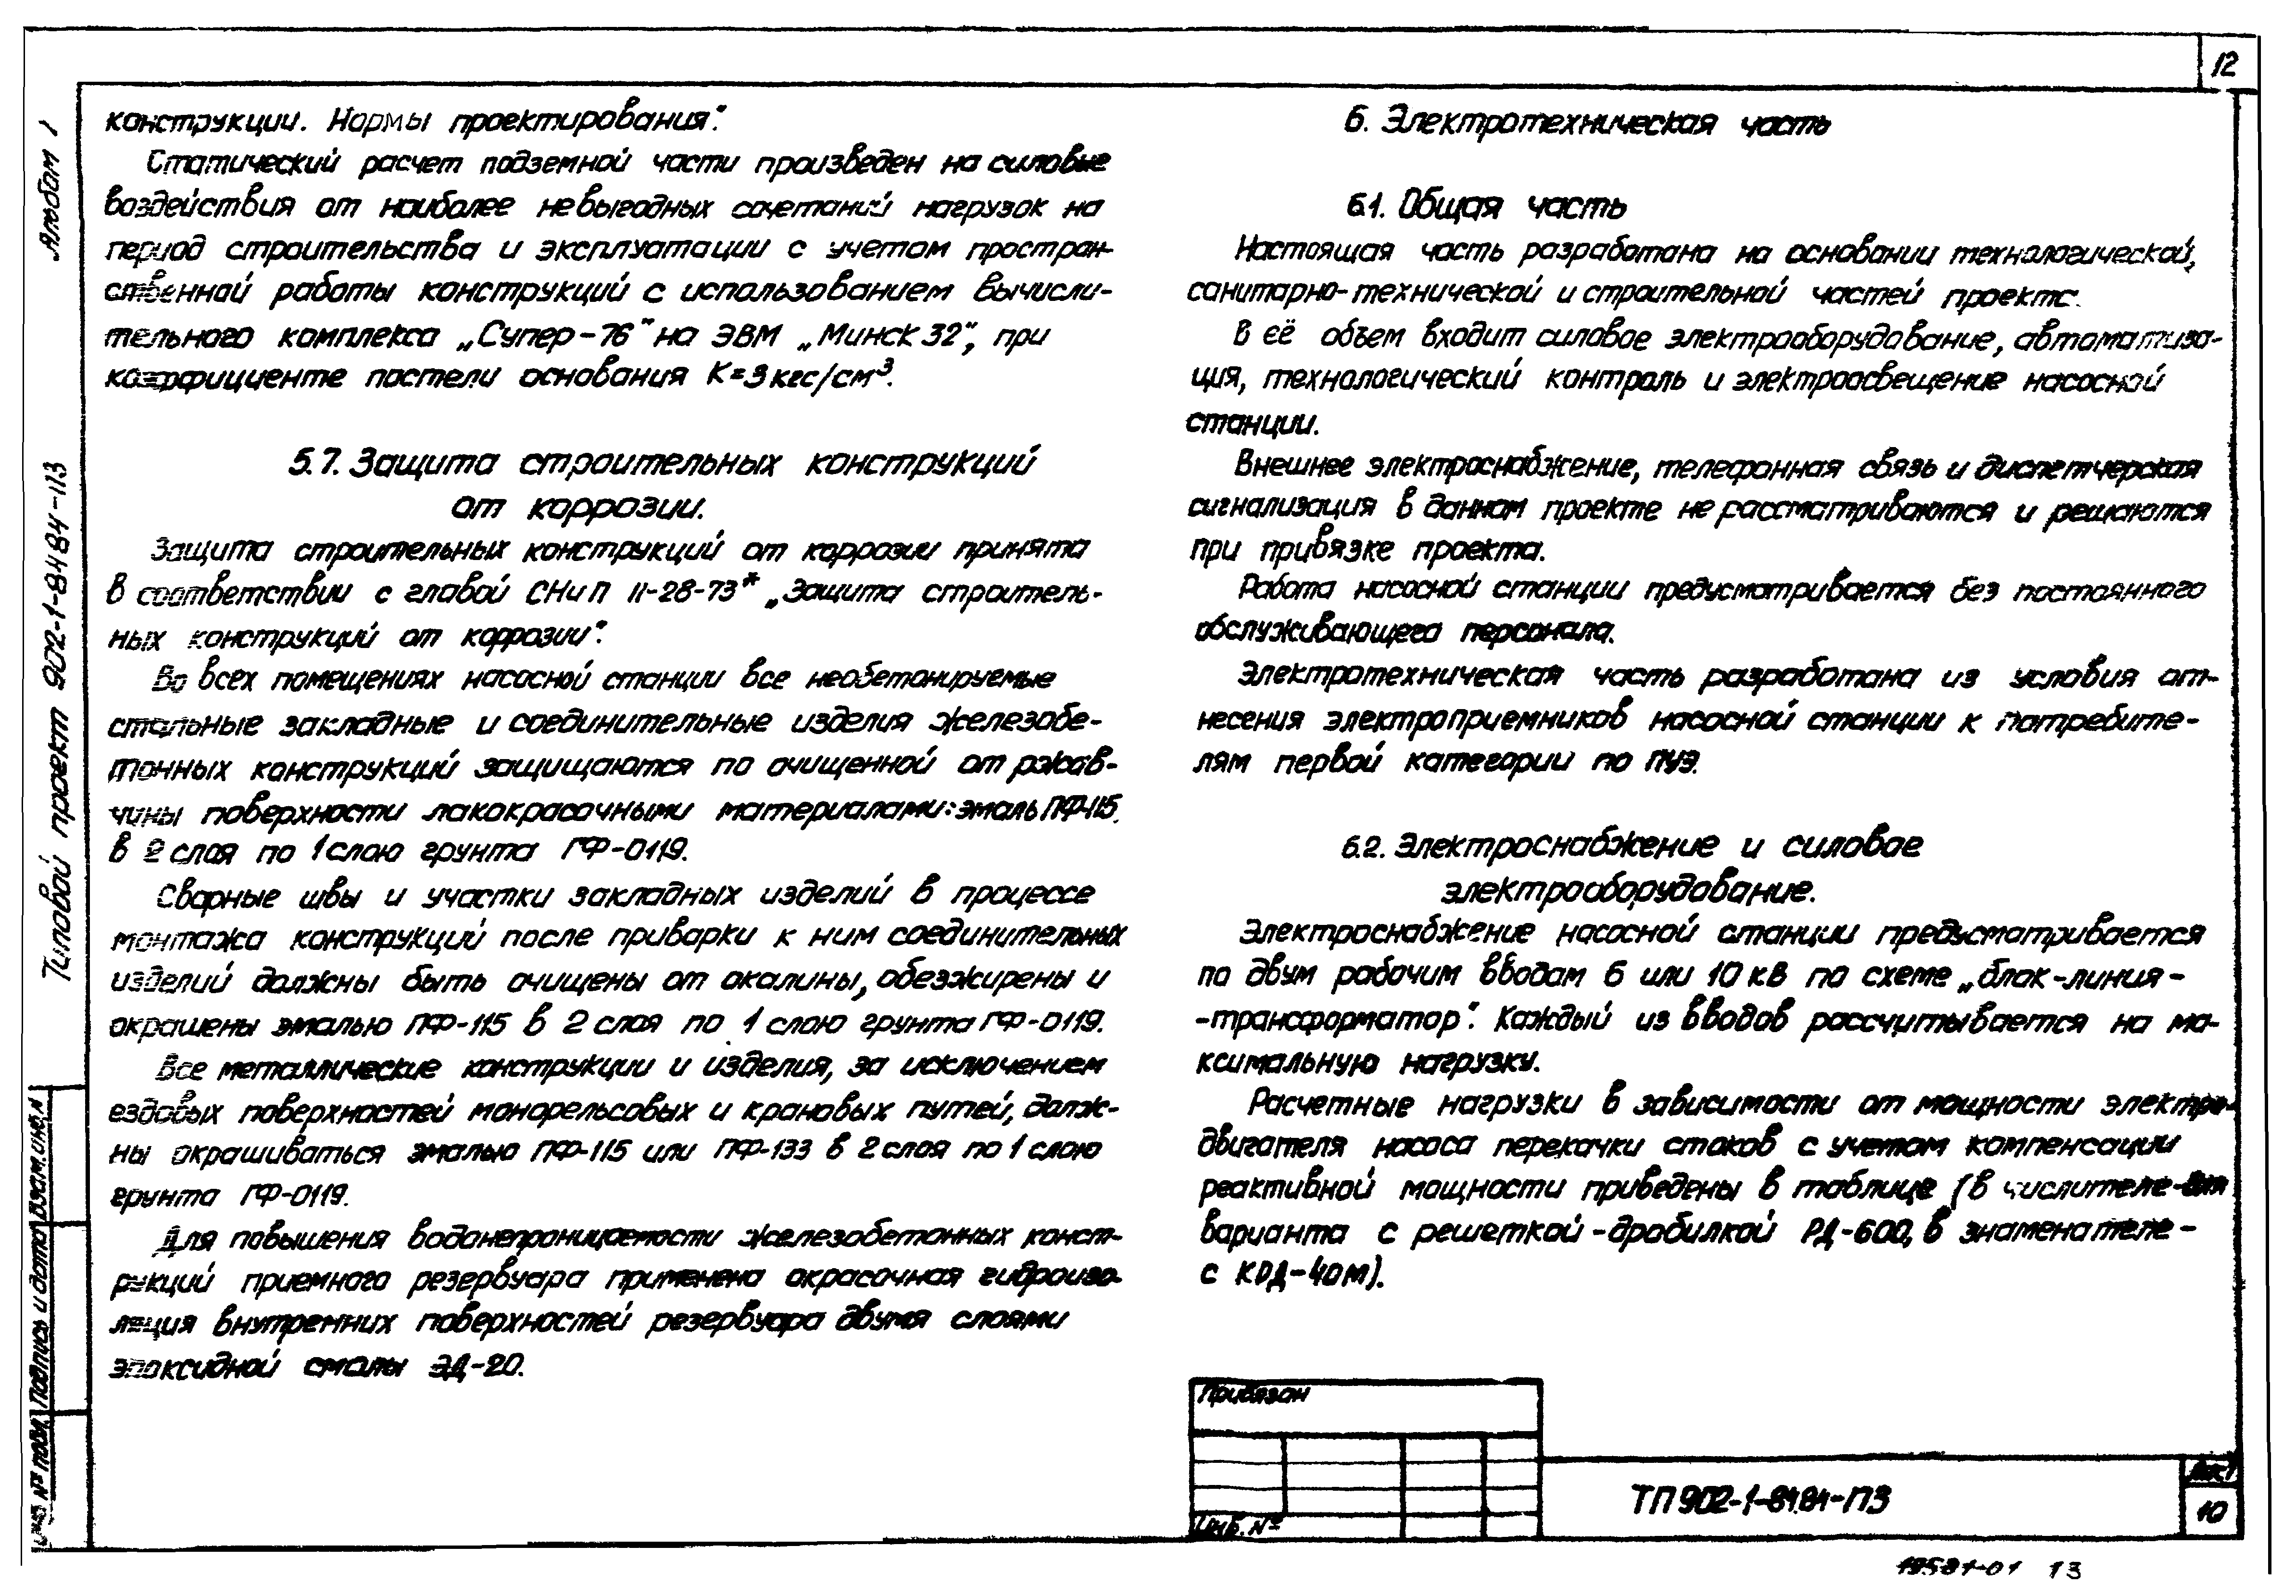 12
Альбом 1
Типовой проект 902-1-84.84-ПЗ
конструкции. Нормы проектирования".
Статический расчет подземной части произведен на силовые
воздействия от наиболее невыгодных сочетаний нагрузок на
период строительства и эксплуатации с учетом простран-
ственной работы конструкций с использованием вычисли-
тельного комплекса „Супер-76" на ЭВМ „Минск 32", при
коэффициенте постели основания К=3кгс/см³.
5.7. Защита строительных конструкций
от коррозии.
Защита строительных конструкций от коррозии принята
в соответствии с главой СНиП II-28-73* „Защита строитель-
ных конструкций от коррозии".
Во всех помещениях насосной станции все необетонируемые
стальные закладные и соединительные изделия железобе-
тонных конструкций защищаются по очищенной от ржав-
чины поверхности лакокрасочными материалами: эмаль ПФ-115
в 2 слоя по 1 слою грунта ГФ-0119.
Сварные швы и участки закладных изделий в процессе
монтажа конструкций после приварки к ним соединительных
изделий должны быть очищены от окалины, обезжирены и
окрашены эмалью ПФ-115 в 2 слоя по 1 слою грунта ГФ-0119.
Все металлические конструкции и изделия, за исключением
ездовых поверхностей монорельсовых и крановых путей, долж-
ны окрашиваться эмалью ПФ-115 или ПФ-133 в 2 слоя по 1 слою
грунта ГФ-0119.
Для повышения водонепроницаемости железобетонных конст-
рукций приемного резервуара применена окрасочная гидроизо-
ляция внутренних поверхностей резервуара двумя слоями
эпоксидной смолы ЭД-20.
6. Электротехническая часть
6.1. Общая часть
Настоящая часть разработана на основании технологической,
санитарно-технической и строительной частей проекта.
В её объем входит силовое электрооборудование, автоматиза-
ция, технологический контроль и электроосвещение насосной
станции.
Внешнее электроснабжение, телефонная связь и диспетчерская
сигнализация в данном проекте не рассматриваются и решаются
при привязке проекта.
Работа насосной станции предусматривается без постоянного
обслуживающего персонала.
Электротехническая часть разработана из условия от-
несения электроприемников насосной станции к потребите-
лям первой категории по ПУЭ.
6.2. Электроснабжение и силовое
электрооборудование.
Электроснабжение насосной станции предусматривается
по двум рабочим вводам 6 или 10 кВ по схеме „блок-линия-
-трансформатор". Каждый из вводов рассчитывается на ма-
ксимальную нагрузку.
Расчетные нагрузки в зависимости от мощности электро-
двигателя насоса перекачки стоков с учетом компенсации
реактивной мощности приведены в таблице (в числителе-для
варианта с решеткой-дробилкой РД-600, в знаменателе-
с КРД-40м).
Инв. № подл. Подпись и дата Взам. инв. №
Привязан
Инв. №
ТП 902-1-84.84-ПЗ
Лист
10
19581-01 13